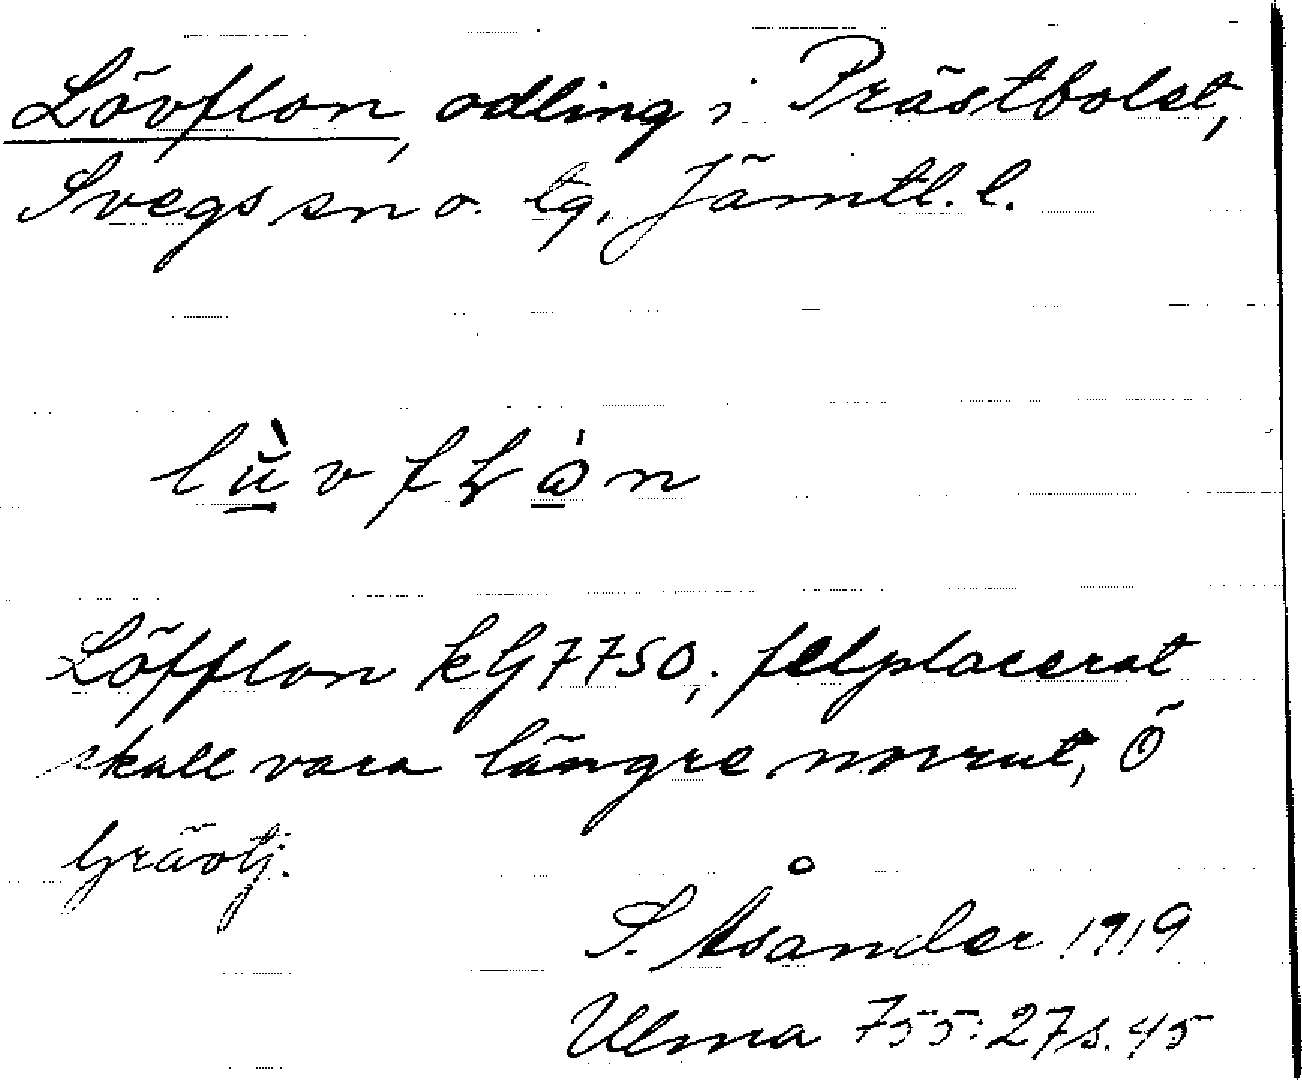 Lövflon, odling i Prästbolet,
Svegs sn o. tg, Jämtl. l.
Löfflon kG7750; felplacerat
skall vara längre norrut, Ö
Grävtj.
S. Åsander 1919
Ulma 755:27 s. 45